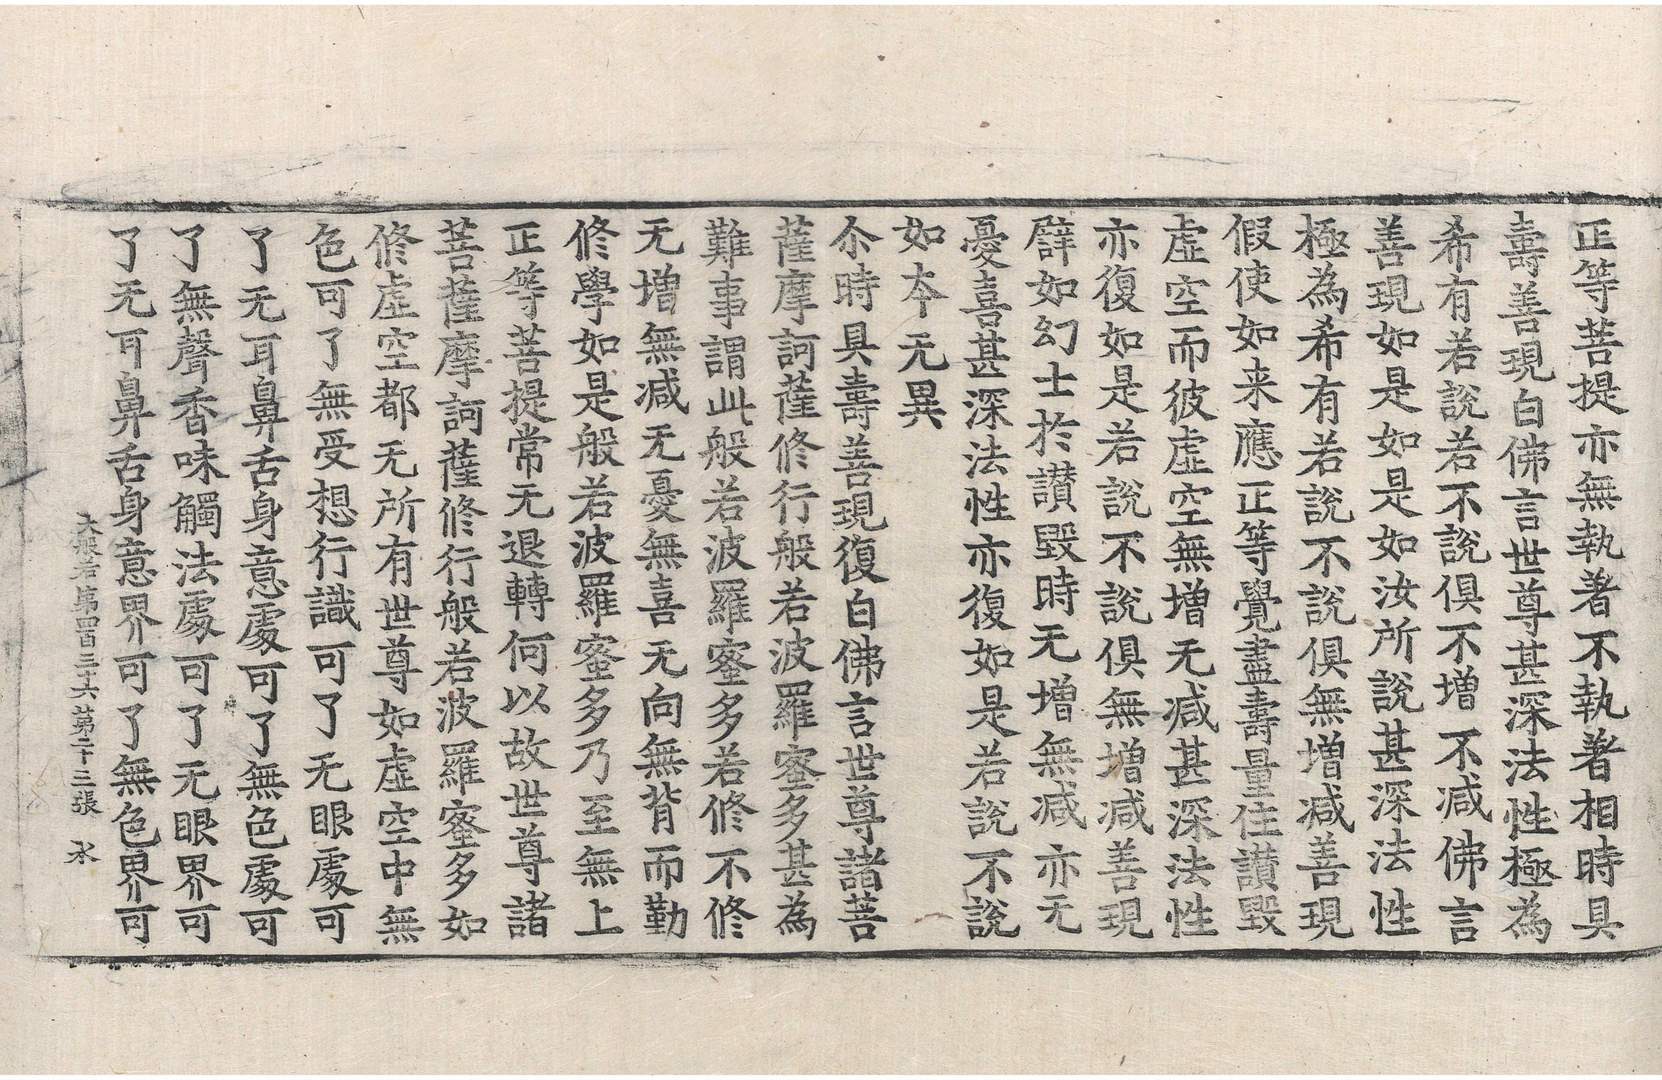 正等菩提亦無執著不執著相時具
壽善現白佛言世尊甚深法性極為
希有若說若不說俱不增不減佛言
善現如是如是如汝所說甚深法性
極為希有若說不說俱無增減善現
假使如来應正等覺盡壽量住讃毀
虛空而彼虛空無增无減甚深法性
亦復如是若說不說俱無增減善現
譬如幻士於讃毀時无增無減亦无
憂喜甚深法性亦復如是若說不說
如夲无異
尒時具壽善現復白佛言世尊諸菩
薩摩訶薩修行般若波羅蜜多甚為
難事謂此般若波羅蜜多若修不修
无增無減无憂無喜无向無背而勤
修學如是般若波羅蜜多乃至無上
正等菩提常无退轉何以故世尊諸
菩薩摩訶薩修行般若波羅蜜多如
修虛空都无所有世尊如虛空中無
色可了無受想行識可了无眼處可
了无耳鼻舌身意處可了無色處可
了無聲香味觸法處可了无眼界可
了无耳鼻舌身意界可了無色界可
大般若第四百三十六 第二十三張 水